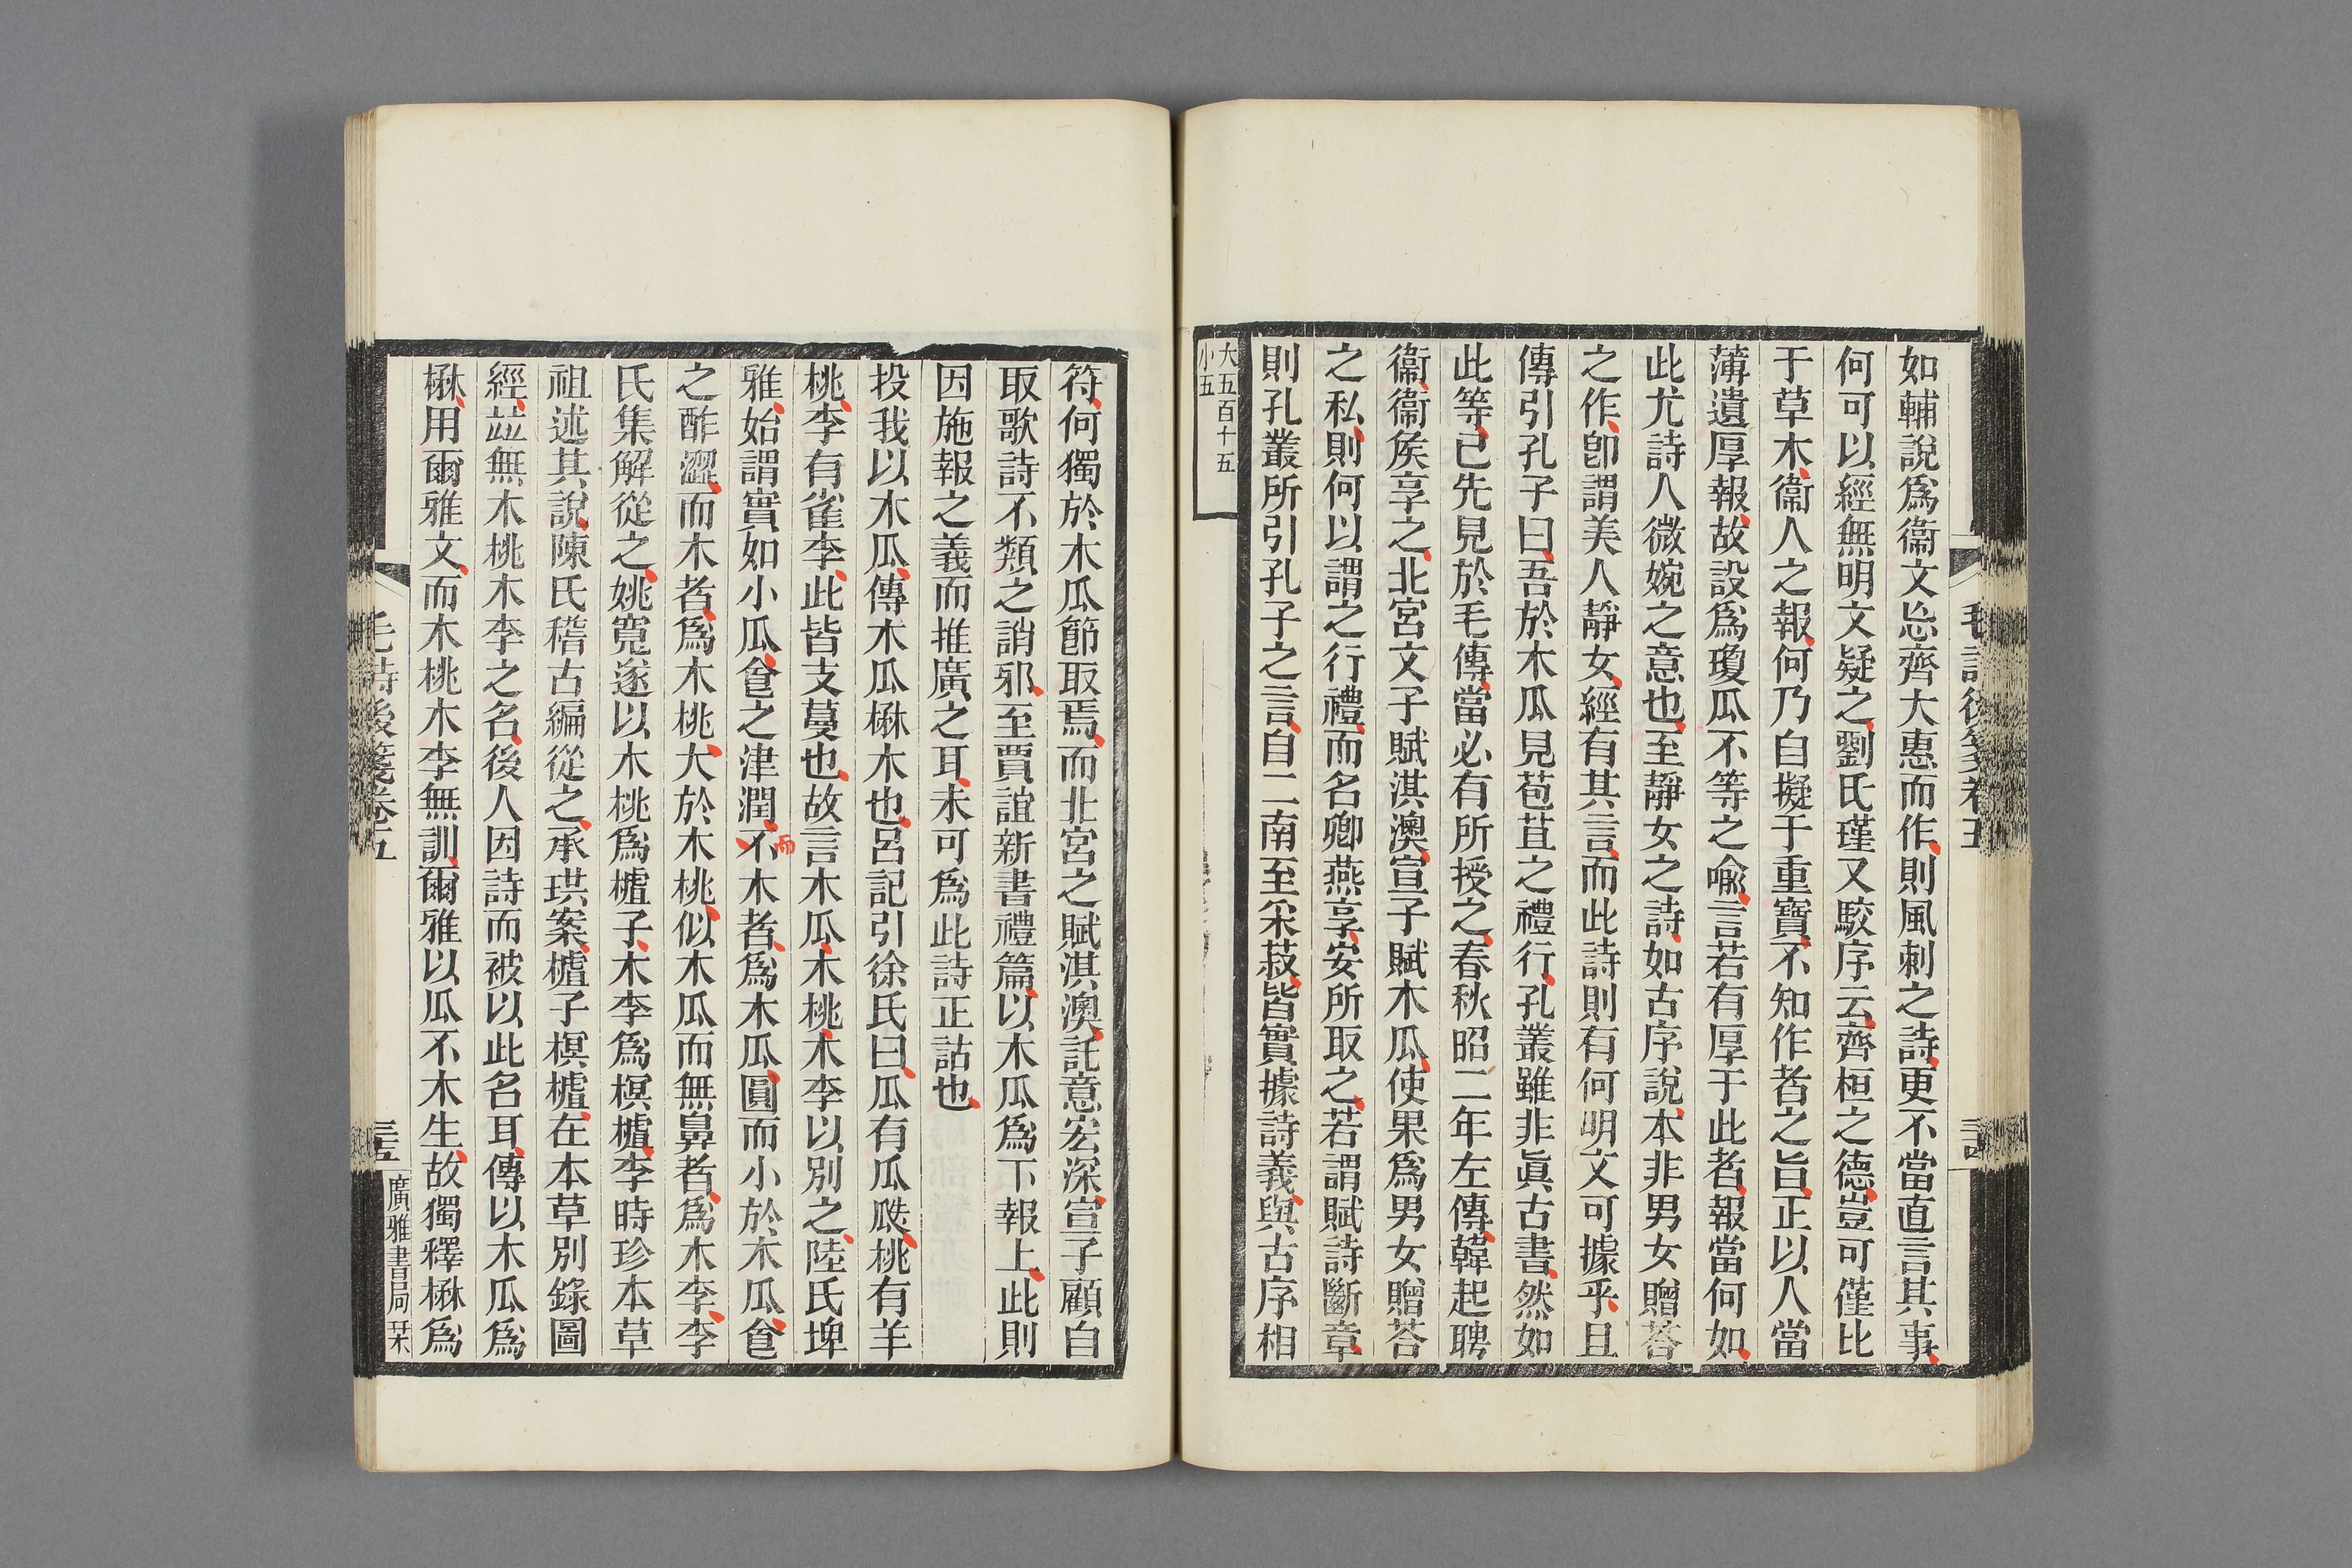 如輔說爲衞文忘齊大惠而作則風刺之詩更不當直言其事
何可以經無明文疑之劉氏瑾又駮序云齊桓之德豈可僅比
于草木衞人之報何乃自擬于重寶不知作者之旨正以人當
薄遺厚報故設爲瓊瓜不等之喩言若有厚于此者報當何如
此尤詩人微婉之意也至靜女之詩如古序說本非男女贈荅
之作卽謂美人靜女經有其言而此詩則有何明文可據乎且
傳引孔子曰吾於木瓜見苞苴之禮行孔叢雖非眞古書然如
此等已先見於毛傳當必有所授之春秋昭二年左傳韓起聘
衞衞矦享之北宮文子賦淇澳宣子賦木瓜使果爲男女贈荅
之私則何以謂之行禮而名卿燕享安所取之若謂賦詩斷章
則孔叢所引孔子之言自二南至采菽皆實據詩義與古序相
大五百十五
小五
毛詩後箋卷五
三四
符何獨於木瓜節取焉而北宮之賦淇澳託意宏深宣子顧自
取歌詩不類之誚邪至賈誼新書禮篇以木瓜爲下報上此則
因施報之義而推廣之耳未可爲此詩正詁也
投我以木瓜傳木瓜楙木也呂記引徐氏曰瓜有瓜瓞桃有羊
桃李有雀李此皆支蔓也故言木瓜木桃木李以別之陸氏埤
雅始謂實如小瓜食之津潤不木者爲木瓜圓而小於木瓜食
而
之酢澀而木者爲木桃大於木桃似木瓜而無鼻者爲木李李
氏集解從之姚寬遂以木桃爲樝子木李爲榠樝李時珍本草
祖述其說陳氏稽古編從之承珙案樝子榠樝在本草別錄圖
經竝無木桃木李之名後人因詩而被以此名耳傳以木瓜爲
楙用爾雅文而木桃木李無訓爾雅以瓜不木生故獨釋楙爲
毛詩後箋卷五
三五
廣雅書局栞